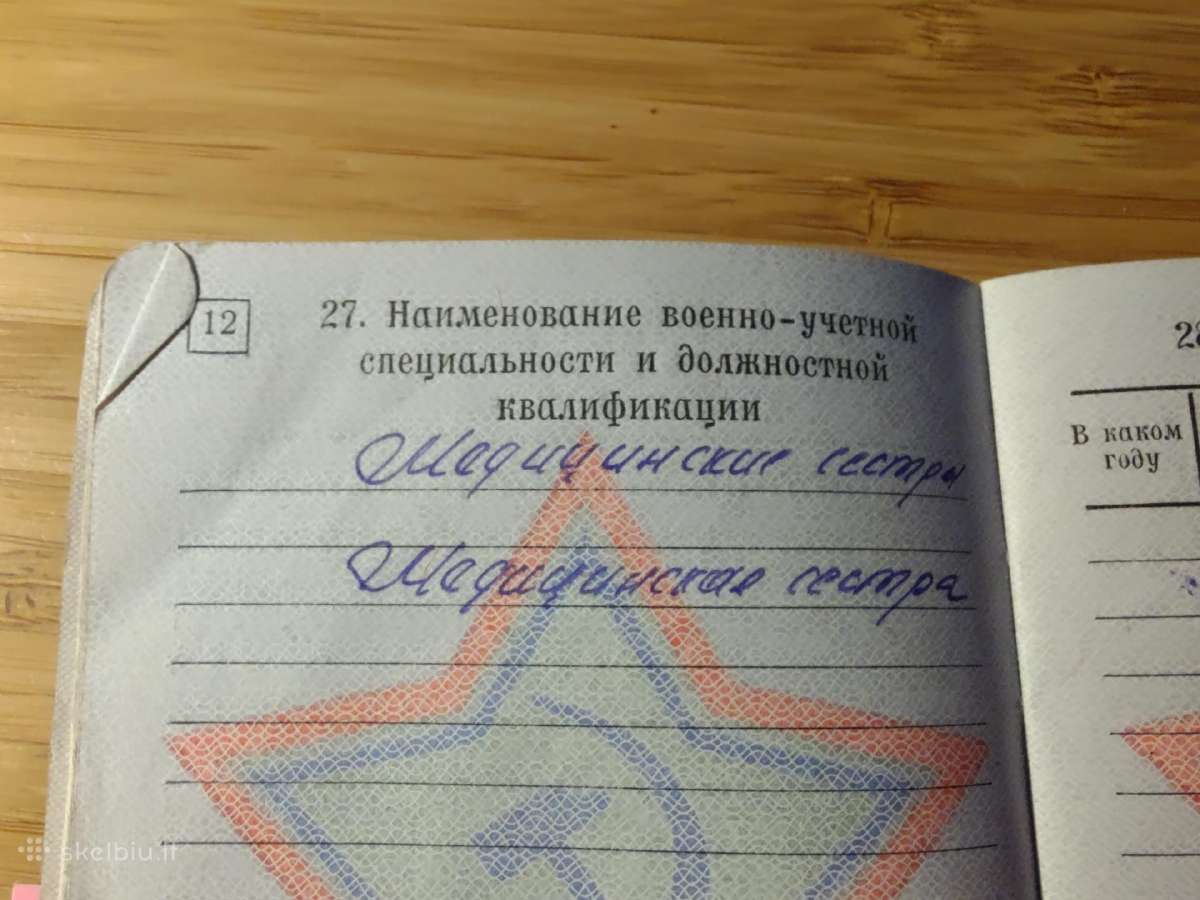 12
27. Наименование военно-учетной
специальности и должностной
квалификации
Медицинские сестры
Медицинская сестра
В каком
году
skelbiu.lt